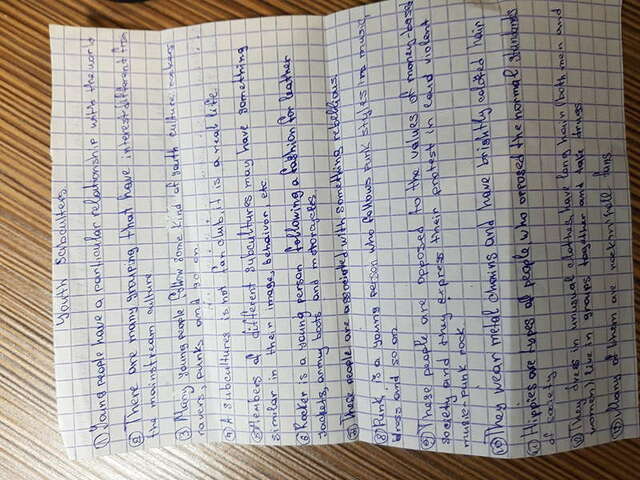 Youth Subcultures
① Young people have a particular relationship with the world
② There are many grouping that have interest different from
the mainstream culture
③ Many young people follow some kind of youth culture
ravers, punks and so on
④ A Subcultures is not fan club. It is a real life.
⑤ Members of different subcultures may have something
similar in their image, behavior etc
⑥ Rocker is a young person following a fashion for leather
jackets, army boots and motorcycles.
⑦ These people are associated with something rebellious
⑧ Punk is a young person who follows punk styles in music,
dress and so on
⑨ These people are opposed to the values of money based
society and they express their protest in loud violent
music punk rock.
⑩ They wear metal chains and have brightly colored hair
⑪ Hippies are types of people who opposed the normal standards
of society
⑫ They dress in unusual clothes, have long hair (both men and
women) live in groups together and take drugs
⑬ Many of them are rock-n-roll fans